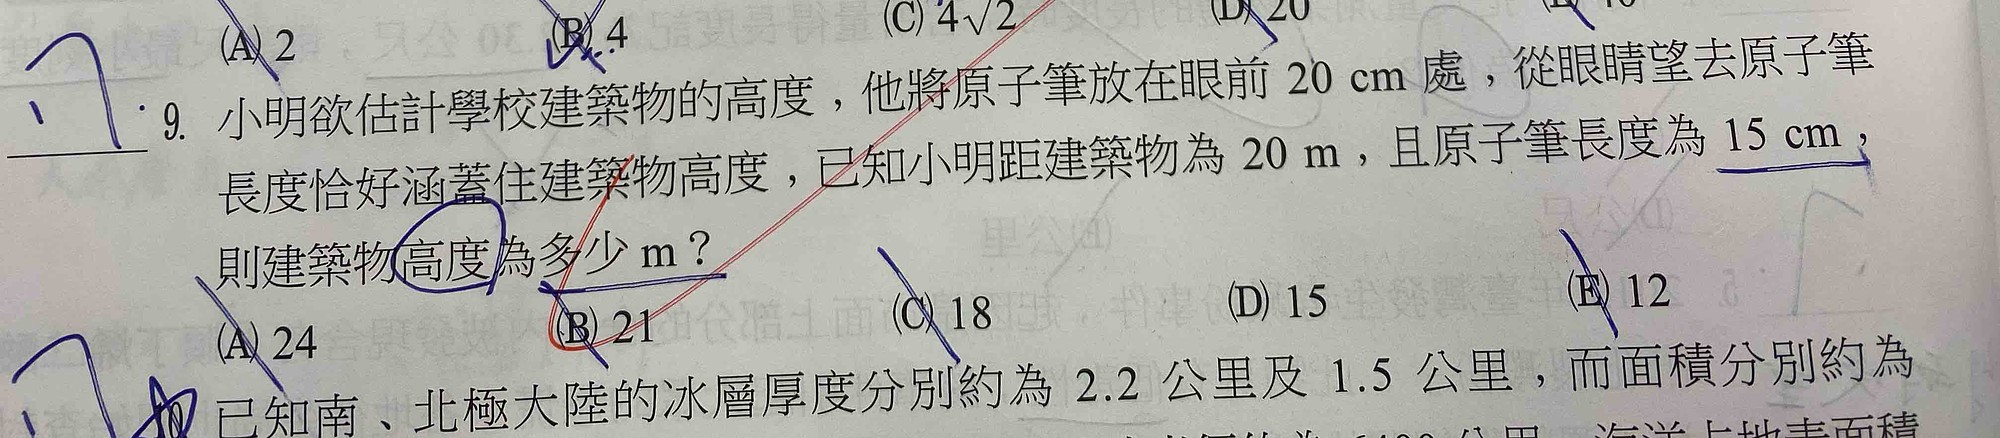 (A) 2 (B) 4 (C) 4√2 (D) 20
9. 小明欲估計學校建築物的高度，他將原子筆放在眼前 20 cm 處，從眼睛望去原子筆
長度恰好涵蓋住建築物高度，已知小明距建築物為 20 m，且原子筆長度為 15 cm，
則建築物高度為多少 m？
(A) 24 (B) 21 (C) 18 (D) 15 (E) 12
已知南、北極大陸的冰層厚度分別約為 2.2 公里及 1.5 公里，而面積分別約為